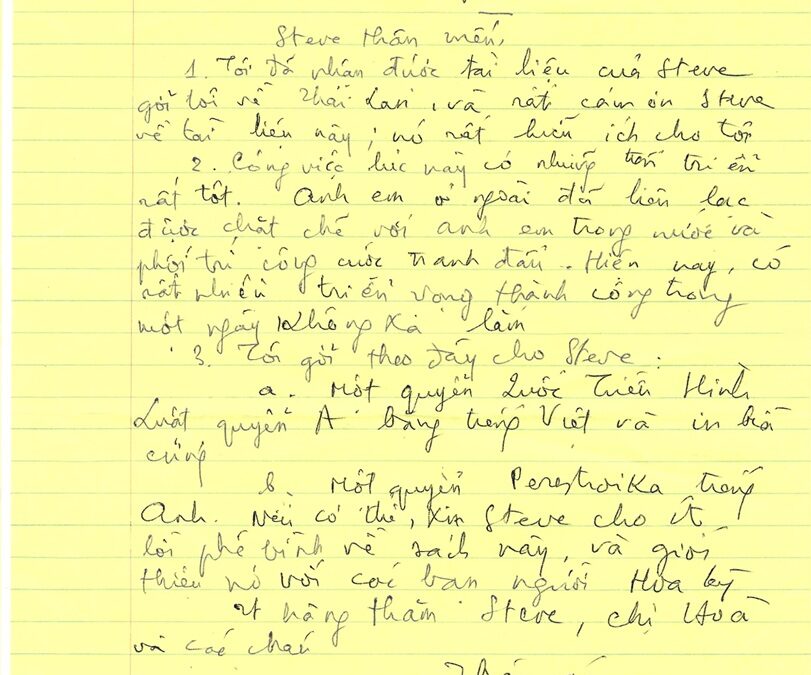 Steve thân mến,
1. Tôi đã nhận được tài liệu của Steve
gởi tôi về Thái Lan, và rất cám ơn Steve
về tài liệu này; nó rất hữu ích cho tôi
2. Công việc lúc này có những tiến triển
rất tốt. Anh em ở ngoài đã liên lạc
được chặt chẽ với anh em trong nước và
phối trí công cuộc tranh đấu. Hiện nay, có
rất nhiều triển vọng thành công trong
một ngày không xa lắm
3. Tôi gởi theo đây cho Steve:
a. Một quyển Quốc Triều Hình
Luật quyển A bằng tiếng Việt và in bìa
cứng
b. Một quyển Perestroika tiếng
Anh. Nếu có thể, xin Steve cho ít
lời phê bình về sách này, và giới
thiệu nó với các bạn người Hoa kỳ
thăm Steve, chị Hoà
và các cháu